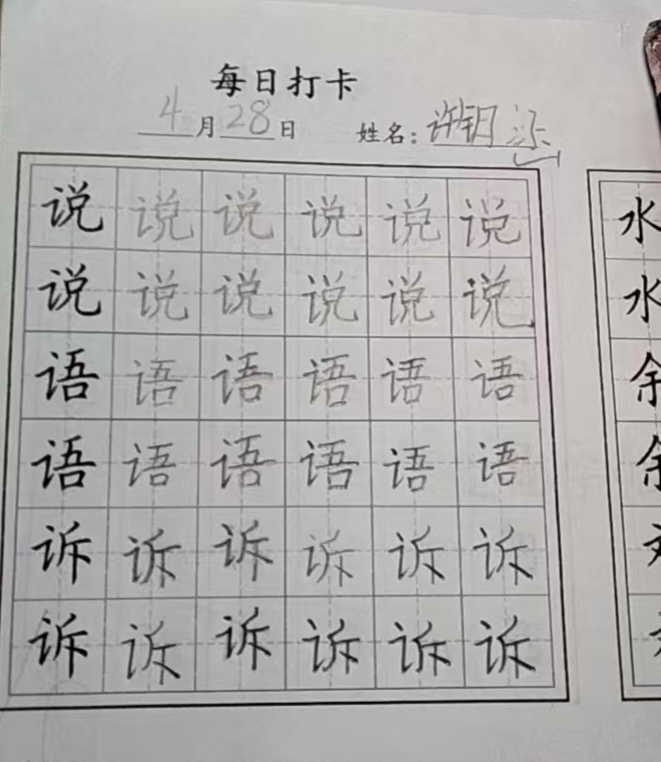 每日打卡
4月28日 姓名：许钥
说说说说说说
说说说说说说
语语语语语语
语语语语语语
诉诉诉诉诉诉
诉诉诉诉诉诉
水
水
余
余